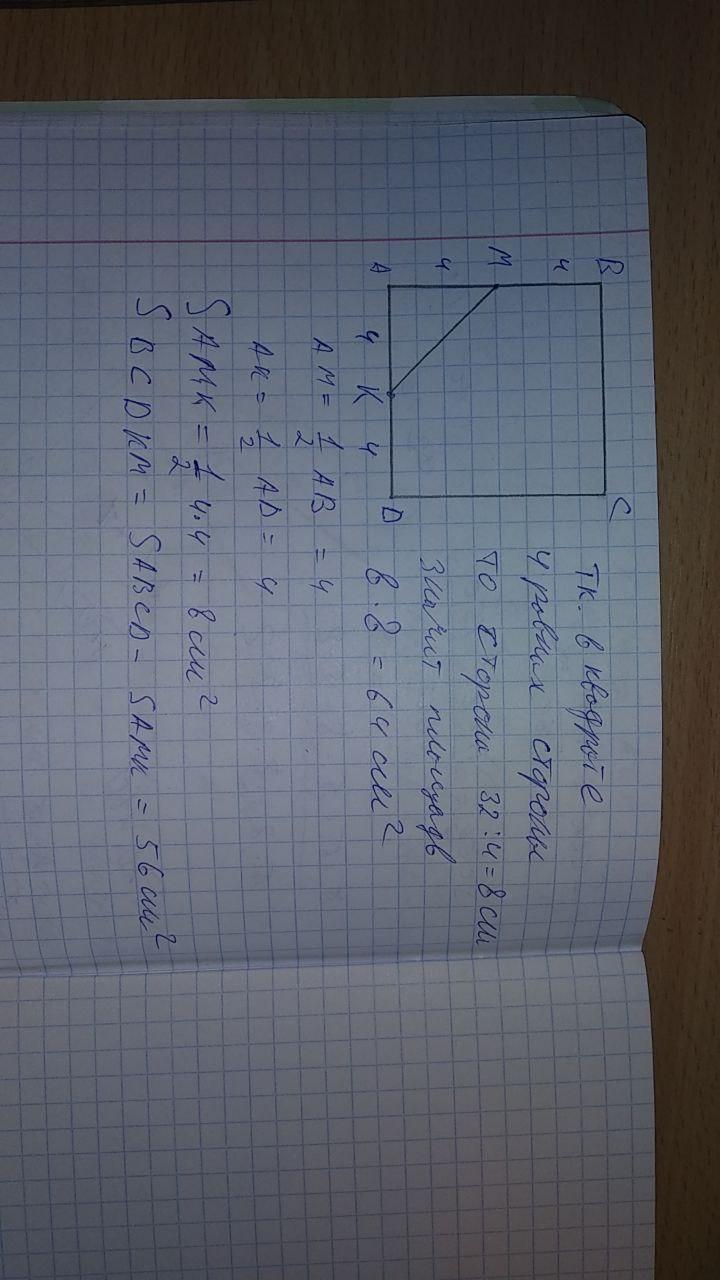 B
C
4
M
4
A
4
K
4
D
Т.к. в квадрате
4 равных стороны
то сторона 32:4=8см
Значит площадь
8·8=64см²
AM = 1/2 AB = 4
AK = 1/2 AD = 4
SAMK = 1/2 4·4 = 8см²
SBCDKM = SABCD - SAMK = 56см²